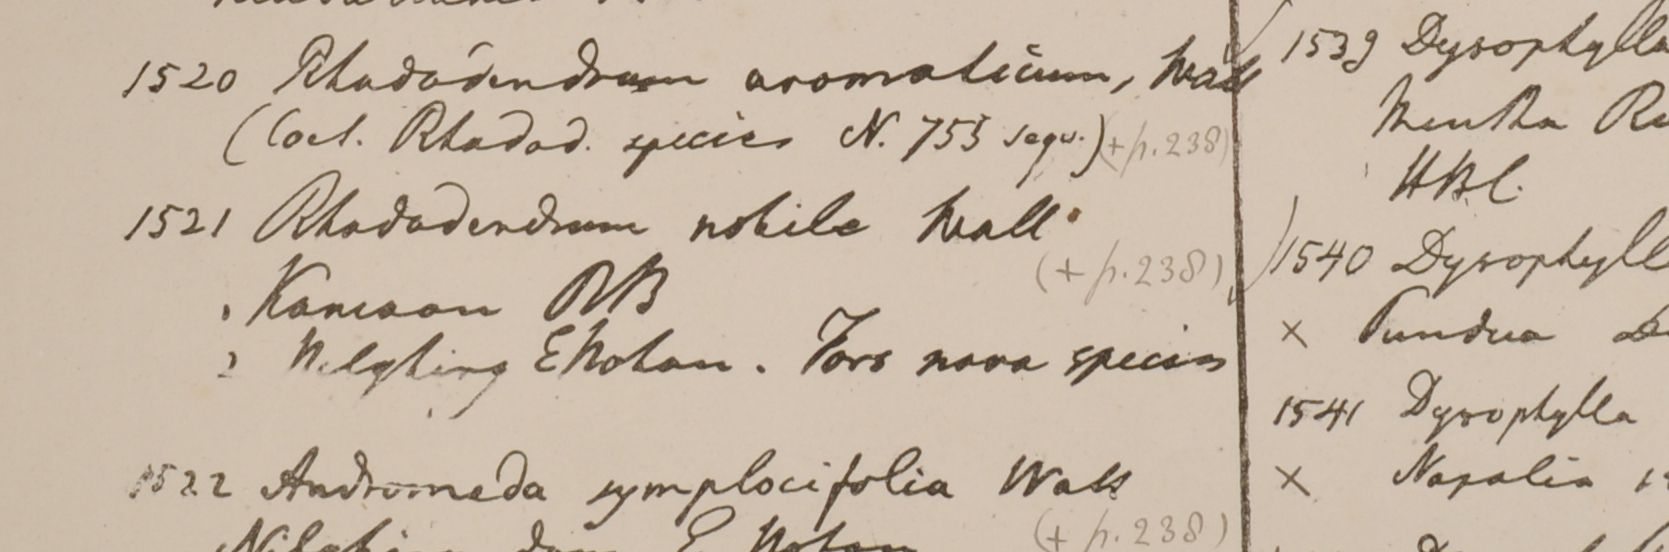 1520 Rhododendrum aromaticum, Wall
(Coet. Rhodod. species N. 753 sequ.) (+ p. 238)
1521 Rhododendrum nobile Wall
(+ p. 238)
Kamaon RB
Nilghiry ENotan. Fors nova species
1522 Andromeda symplocifolia Wall
(+ p. 238)
1539 Dysophylla
Mentha
HBC.
1540 Dysophyll
× Pundua
1541 Dysophylla
× Napalia